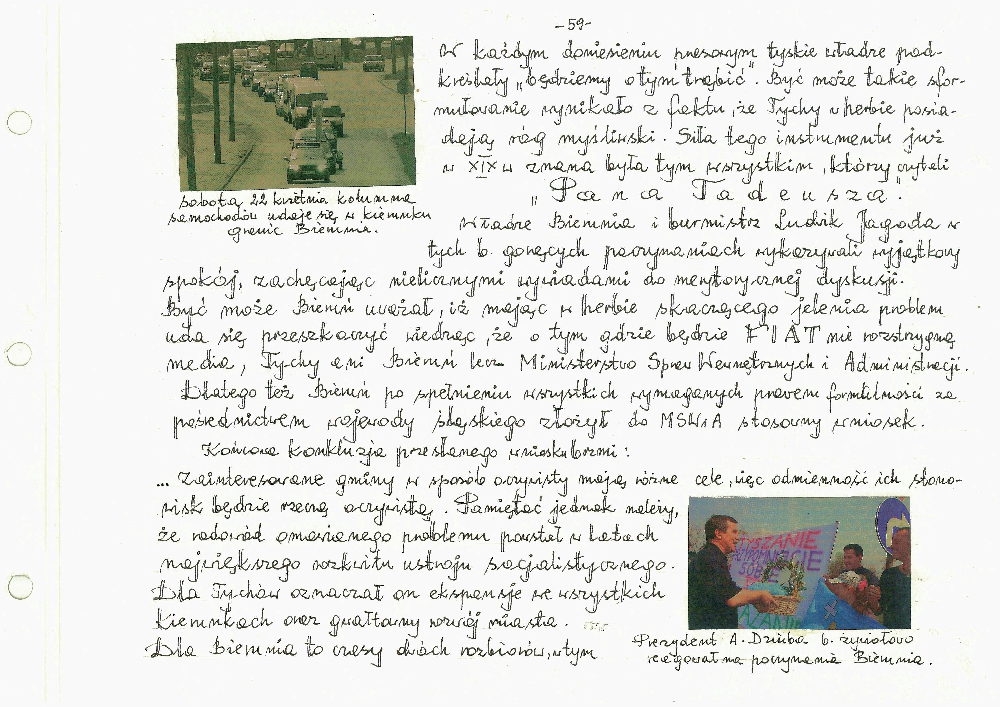 -59-
W każdym doniesieniu prasowym tyskie władze pod-
kreślały „będziemy o tym trąbić". Być może takie sfor-
mułowanie wynikało z faktu, że Tychy w herbie posia-
dają róg myśliwski. Siła tego instrumentu już
w XIX w znana była tym wszystkim, którzy czytali
„Pana Tadeusza".
sobota 22 kwietnia kolumna
samochodów udaje się w kierunku
granic Bierunia.
Władze Bierunia i burmistrz Ludwik Jagoda w
tych b. gorących poczynaniach wykazywali wyjątkowy
spokój, zachęcając nielicznymi wywiadami do merytorycznej dyskusji.
Być może Bieruń uważał, iż mając w herbie skaczącego jelenia problem
uda się przeskoczyć wiedząc, że o tym gdzie będzie FIAT nie rozstrzygną
media, Tychy ani Bieruń lecz Ministerstwo Spraw Wewnętrznych i Administracji.
Dlatego też Bieruń po spełnieniu wszystkich wymaganych prawem formalności za
pośrednictwem wojewody śląskiego złożył do MSWiA stosowny wniosek.
Końcowa konkluzja przesłanego wniosku brzmi:
... Zainteresowane gminy w sposób oczywisty mają różne cele, więc odmienność ich stano-
wisk będzie rzeczą oczywistą. Pamiętać jednak należy,
że rodowód omawianego problemu powstał w latach
największego rozkwitu ustroju socjalistycznego.
Dla Tychów oznaczał on ekspansję we wszystkich
kierunkach oraz gwałtowny rozwój miasta.
Dla Bierunia to czasy dwóch rozbiorów, w tym
TYSZANIE
SOBIE
Prezydent A. Dziuba b. żywiołowo
reagował na poczynania Bierunia.